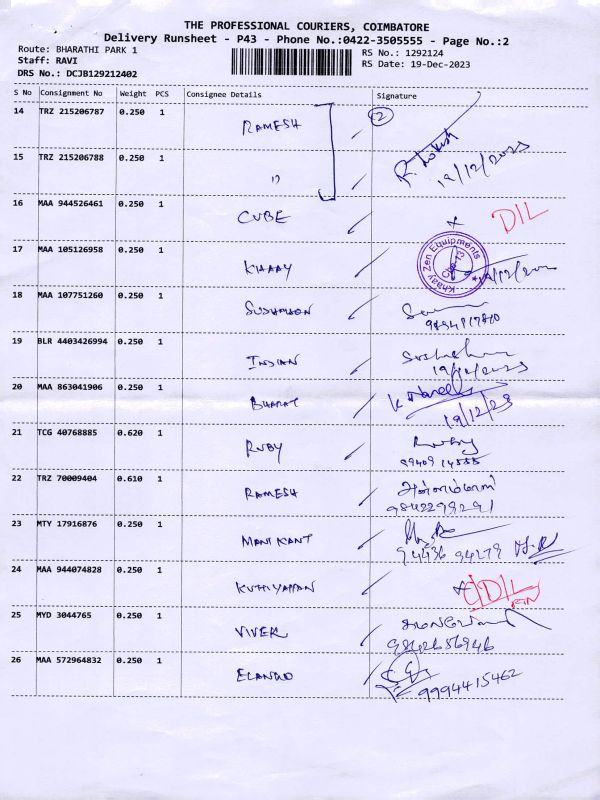 THE PROFESSIONAL COURIERS, COIMBATORE
Delivery Runsheet - P43 - Phone No.:0422-3505555 - Page No.:2
Route: BHARATHI PARK 1 RS No.: 1292124
Staff: RAVI RS Date: 19-Dec-2023
DRS No.: DCJB129212402
S No Consignment No Weight PCS Consignee Details Signature
14 TRZ 215206787 0.250 1 RAMESH 2
15 TRZ 215206788 0.250 1 " 19/12/2023
16 MAA 944526461 0.250 1 CUBE DIL
17 MAA 105126958 0.250 1 KHAAY Khaay Zen Equipments
18 MAA 107751260 0.250 1
19 BLR 4403426994 0.250 1 INDIAN 19/12/2023
20 MAA 863041906 0.250 1 BHARAT 19/12/23
21 TCG 40768885 0.620 1 RUBY
22 TRZ 70009404 0.610 1 RAMESH 9842298291
23 MTY 17916876 0.250 1 MANIKANT 94436 94279
24 MAA 944074828 0.250 1 KUTTIYAPPAN DIL
25 MYD 3044765 0.250 1 VIVEK 9842656946
26 MAA 572964832 0.250 1 ELANGO 9994415462